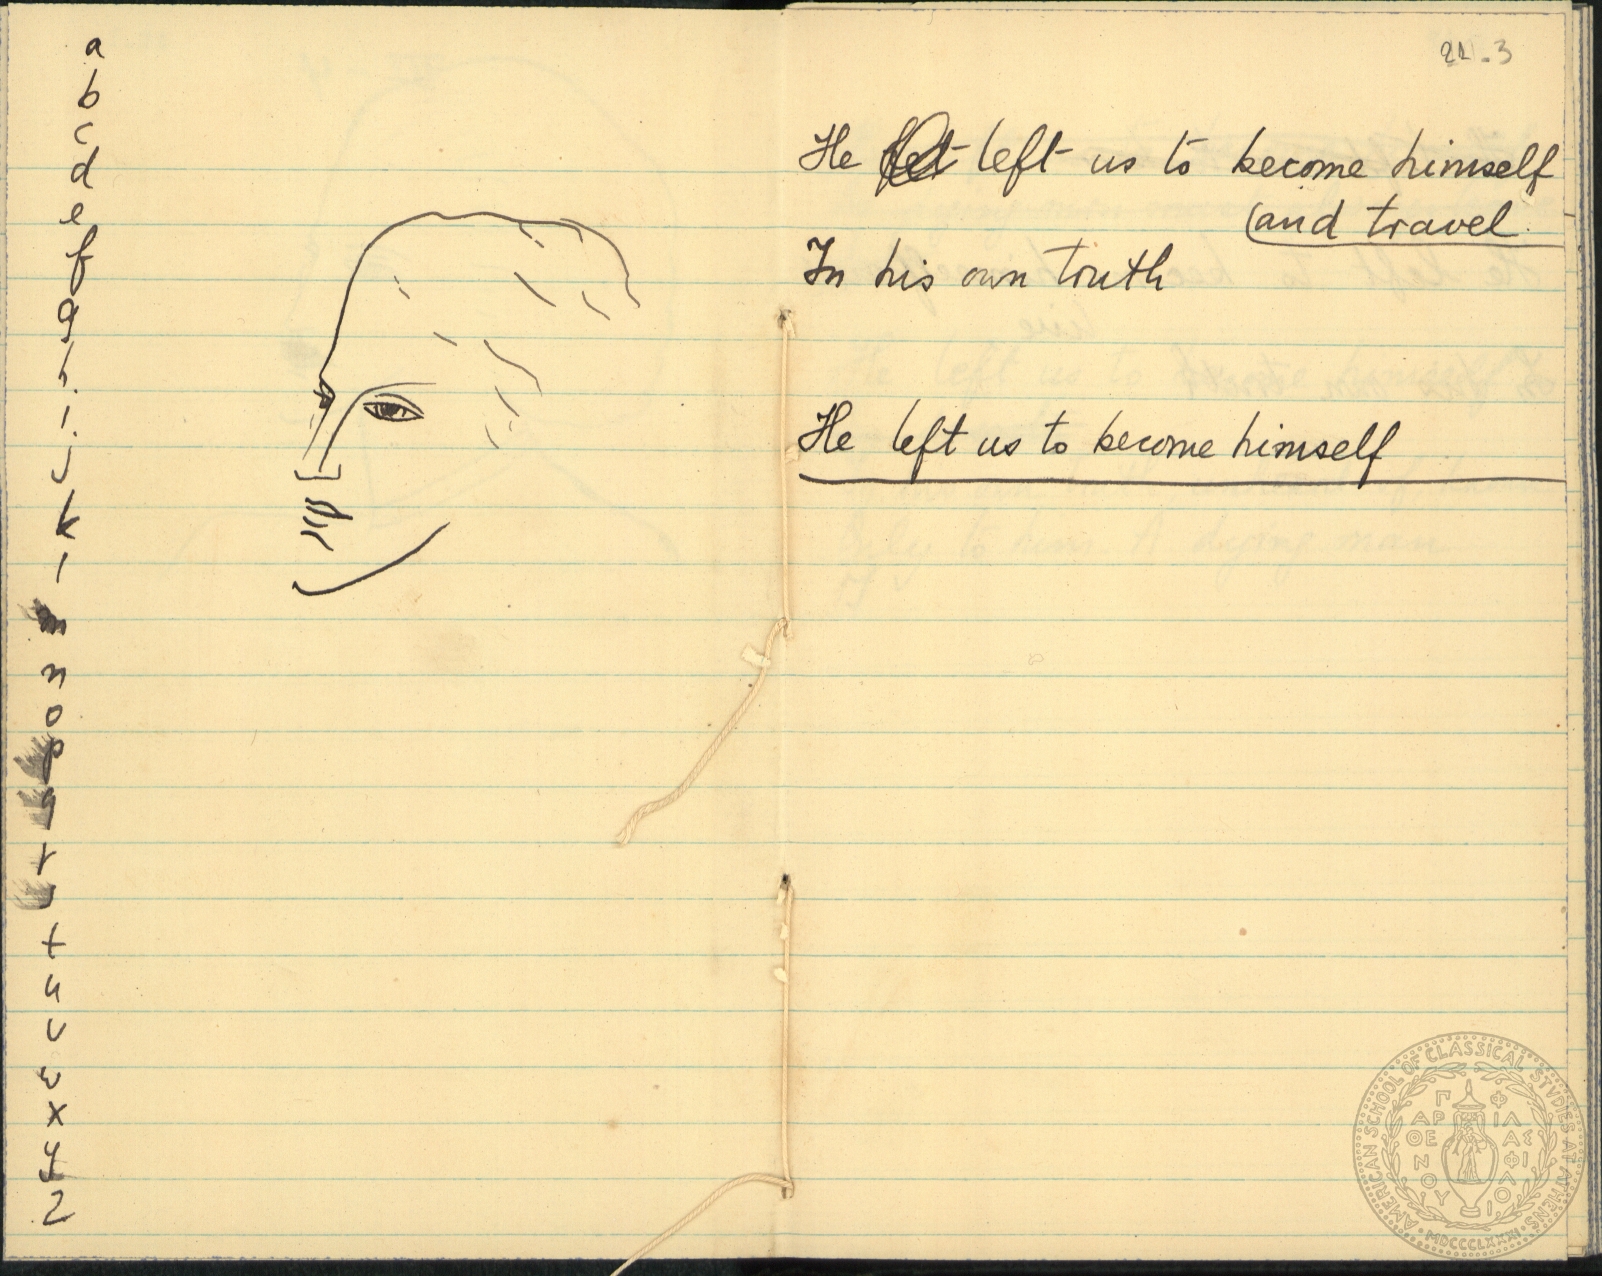 a
b
c
d
e
f
g
h
i
j
k
l
m
n
o
p
q
r
s
t
u
v
w
x
y
z
21.3
He left us to become himself
(and travel
In his own truth
He left us to become himself
AMERICAN SCHOOL OF CLASSICAL STUDIES AT ATHENS
MDCCCLXXXI